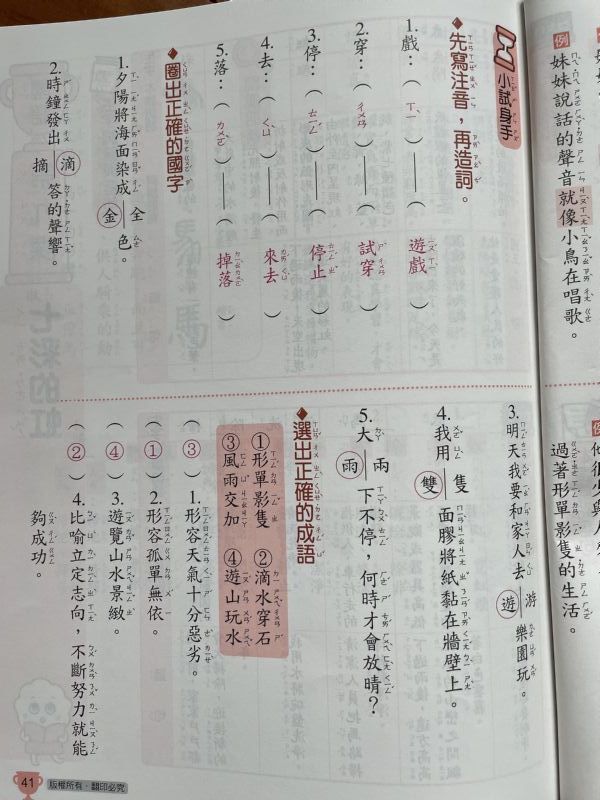 小試身手
◆先寫注音，再造詞。
1.戲：（ㄒㄧˋ）——（遊戲）
2.穿：（ㄔㄨㄢ）——（試穿）
3.停：（ㄊㄧㄥˊ）——（停止）
4.去：（ㄑㄩˋ）——（來去）
5.落：（ㄌㄨㄛˋ）——（掉落）
◆圈出正確的國字
1.夕陽將海面染成 全 金 色。
2.時鐘發出 滴 摘 答的聲響。
3.明天我要和家人去 游 遊 樂園玩。
4.我用 隻 雙 面膠將紙黏在牆壁上。
5.大 兩 雨 下不停，何時才會放晴？
◆選出正確的成語
①形單影隻 ②滴水穿石
③風雨交加 ④遊山玩水
（③）1.形容天氣十分惡劣。
（①）2.形容孤單無依。
（④）3.遊覽山水景緻。
（②）4.比喻立定志向，不斷努力就能
夠成功。
41 版權所有．翻印必究
例
妹妹說話的聲音就像小鳥在唱歌。
例
過著形單影隻的生活。